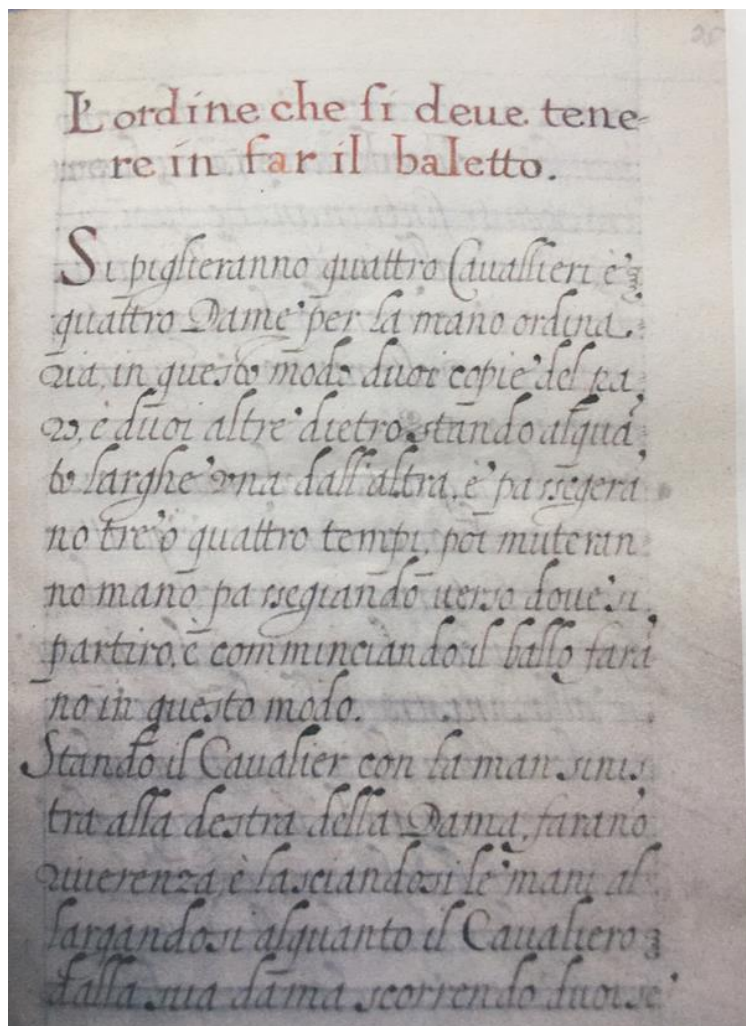 25
L'ordine che si deue tene=
re in far il baletto.
Si piglieranno quattro Cauallieri è
quattro Dame per la mano ordina
ria, in questo modo duoi copie del pa,
ro, è duoi altre dietro stando alquā
to larghe vna dall'altra, è passegerā
no tre ò quattro tempi, poi muteran
no mano passegiando uerso doue si
partiro, è comminciando il ballo farā
no in questo modo.
Stando il Caualier con la man sinis,
tra alla destra della Dama, farano
riuerenza, è lasciandosi le mani al
largandosi alquanto il Caualiero
dalla sua dama scorrendo duoi se